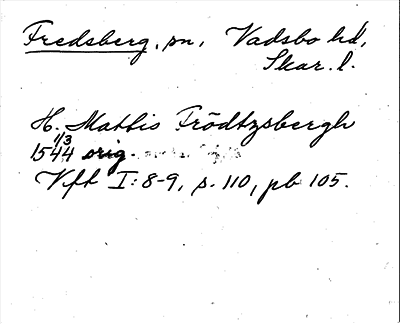 Fredsberg, sn, Vadsbo hd,
Skar. l.
H. Mattis Frödtzsbergh
1544 1/3 orig.
Vft I: 8-9, s. 110, pb 105.